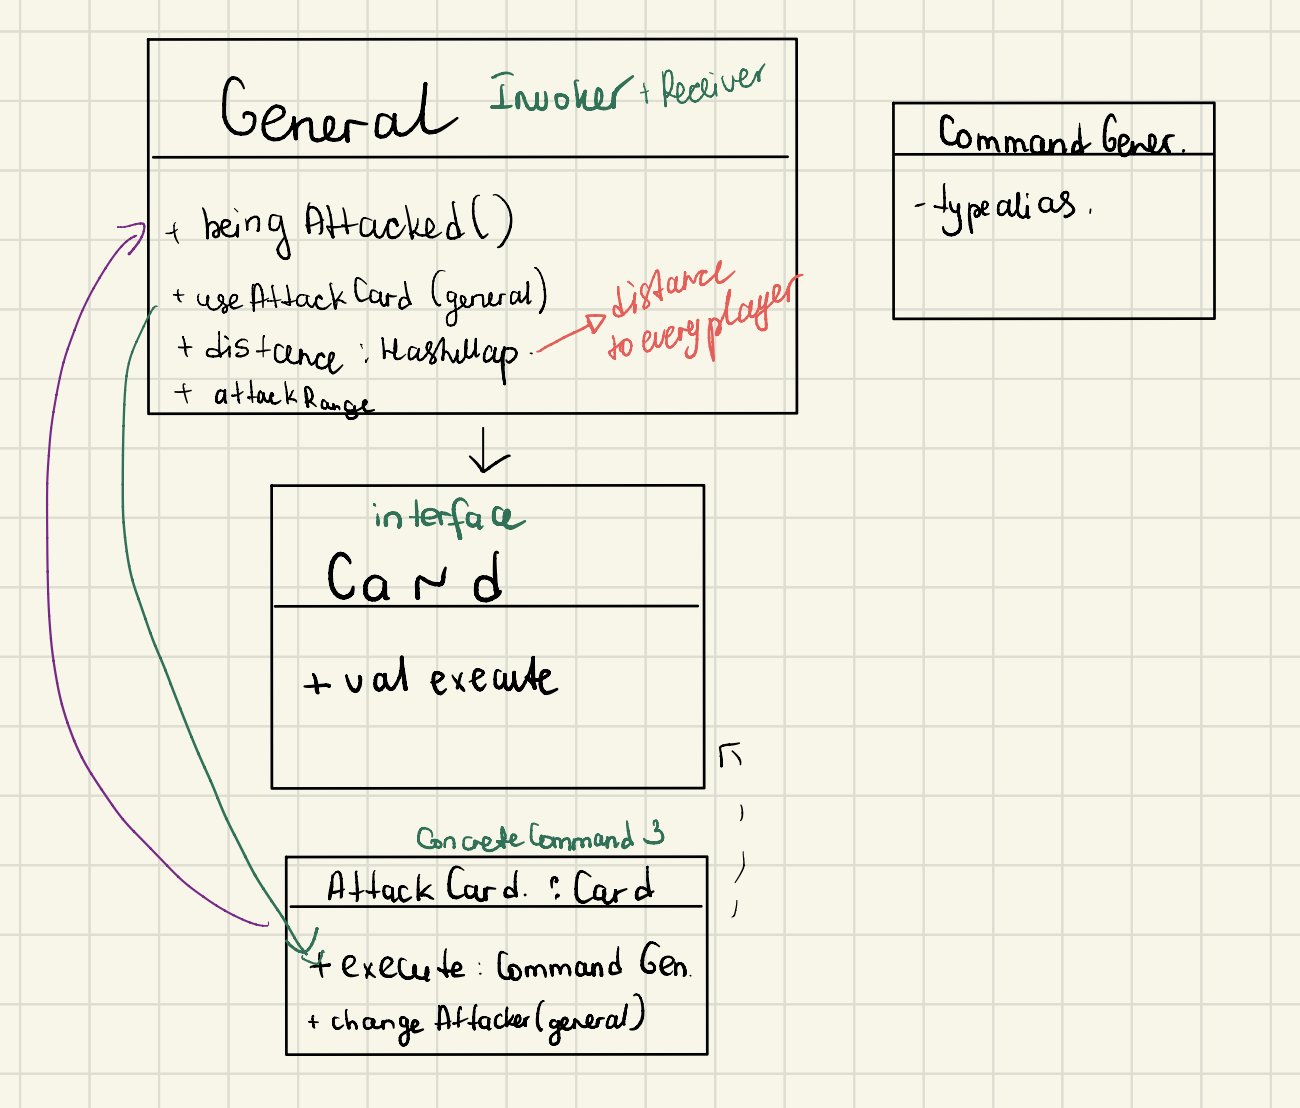 General Invoker + Receiver
+ being Attacked()
+ use Attack Card (general)
+ distance : HashMap.
distance
to every player
+ attackRange
Command Gener.
- typealias.
interface
Card
+ val execute
Concrete Command 3
Attack Card. : Card
+ execute : Command Gen.
+ change Attacker(general)